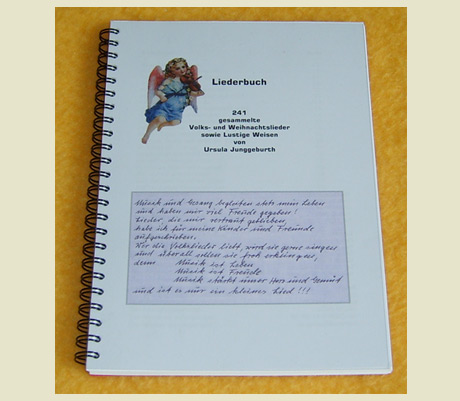 Liederbuch
241
gesammelte
Volks- und Weihnachtslieder
sowie Lustige Weisen
von
Ursula Junggeburth
Musik und Gesang begleiten stets mein Leben
und haben mir viel Freude gegeben!
Lieder, die mir vertraut geblieben,
habe ich für meine Kinder und Freunde
aufgeschrieben.
Wer die Volkslieder liebt, wird sie gerne singen
und überall sollen sie froh erklingen,
denn Musik ist Leben
Musik ist Freude
Musik stärkt unser Herz und Gemüt
und ist es nur ein kleines Lied!!!